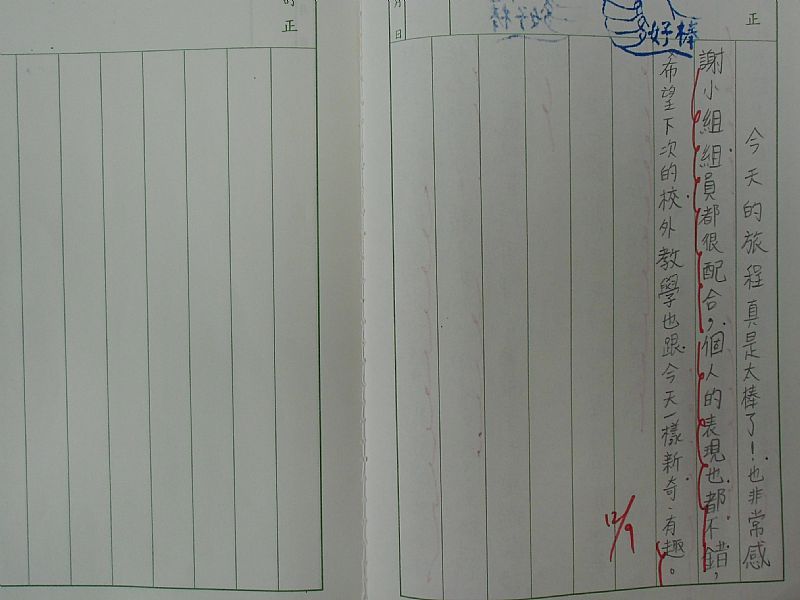 今天的旅程真是太棒了!也非常感
謝小組組員都很配合,個人的表現也都不錯,
希望下次的校外教學也跟今天一樣新奇、有趣。
12/9
好棒
正
月
日
正